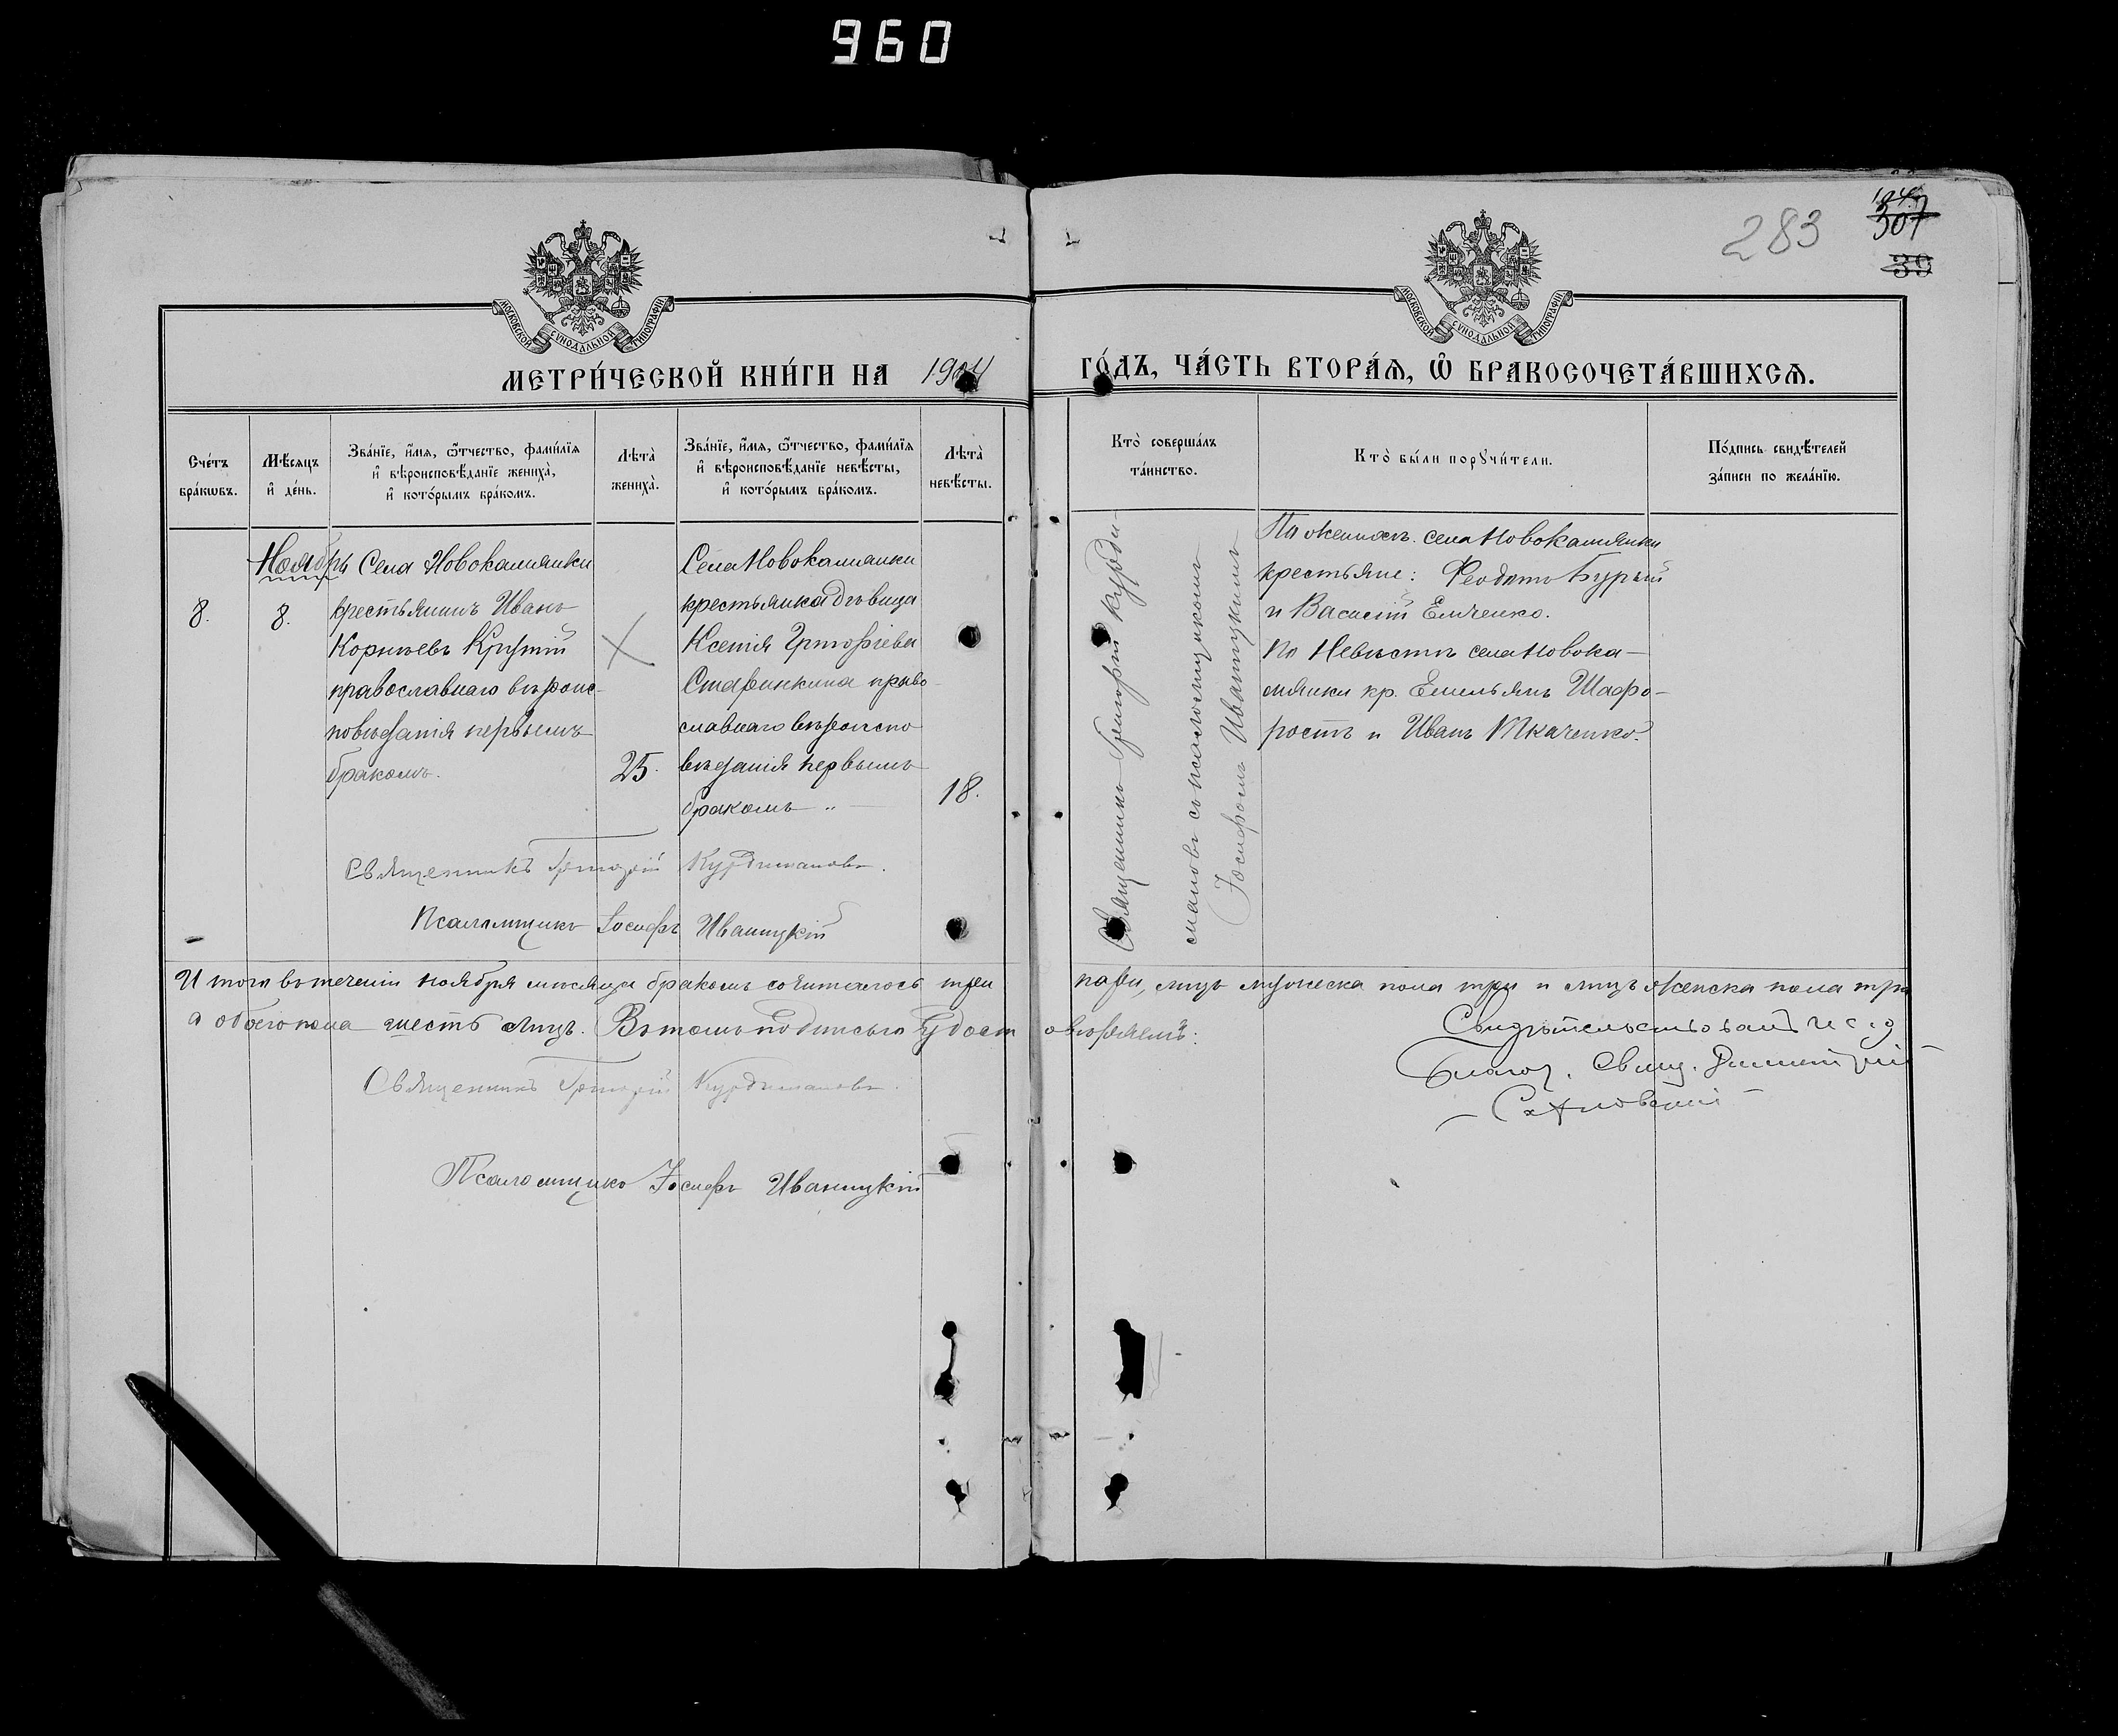 960
283
307
39
МОСКОВСКОЙ СѴНОДАЛЬНОЙ ТИПОГРАФІИ
МОСКОВСКОЙ СѴНОДАЛЬНОЙ ТИПОГРАФІИ
МЕТРИ́ЧЕСКОЙ КНИ́ГИ НА 1904 ГО́ДЪ, ЧА́СТЬ ВТОРА́Ѧ, Ѽ БРАКОСОЧЕТА́ВШИХСѦ.
Сче́тъ
бра́кѡвъ.
Мѣ́сяцъ
и҆ де́нь.
Зва́нїе, и҆́мѧ, ѻ҆́тчество, фами́лїѧ
и҆ вѣроисповѣ́данїе жениха̀,
и҆ кото́рымъ бра́комъ.
Лѣта̀
жениха̀.
Зва́нїе, и҆́мѧ, ѻ҆́тчество, фами́лїѧ
и҆ вѣроисповѣ́данїе невѣ́сты,
и҆ кото́рымъ бра́комъ.
Лѣта̀
невѣ́сты.
Кто̀ соверша́лъ
та́инство.
Кто̀ бы́ли порꙋчи́тели.
По́дпись свидѣ́телей
за́писи по жела́нїю.
Ноябрь
8.
8.
Села Новокамянки
крестьянинъ Иванъ
Корнiевъ
православнаго вѣроис-
повѣданія первымъ
бракомъ.
25.
Села Новокамянки
крестьянка дѣвица
Ксенія Григоріева
Старинкина право-
славнаго вѣроиспо
вѣданія первымъ
бракомъ
18.
Священникъ Григорій Курди-
мановъ съ псаломщикомъ
Іосифомъ Иваницкимъ
По женихѣ: села Новокамянки
крестьяне: Феодотъ Бурый
и Василій Емченко.
По Невѣстѣ села Новока-
мянки кр. Емельянъ Шафо-
ростъ и Иванъ Ткаченко.
Священникъ Григорій Курдимановъ.
Псаломщикъ Іосифъ Иваницкій
Итого въ теченіи ноября мѣсяца бракомъ сочиталось три пары, лицъ мужеска пола три и лицъ женска пола три
а обоего пола шесть лицъ. Въ томъ подписью удостовѣряемъ:
Священникъ Григорій Курдимановъ.
Псаломщикъ Іосифъ Иваницкій
Свидѣтельствовалъ
Благоч. Свящ. Димитрій